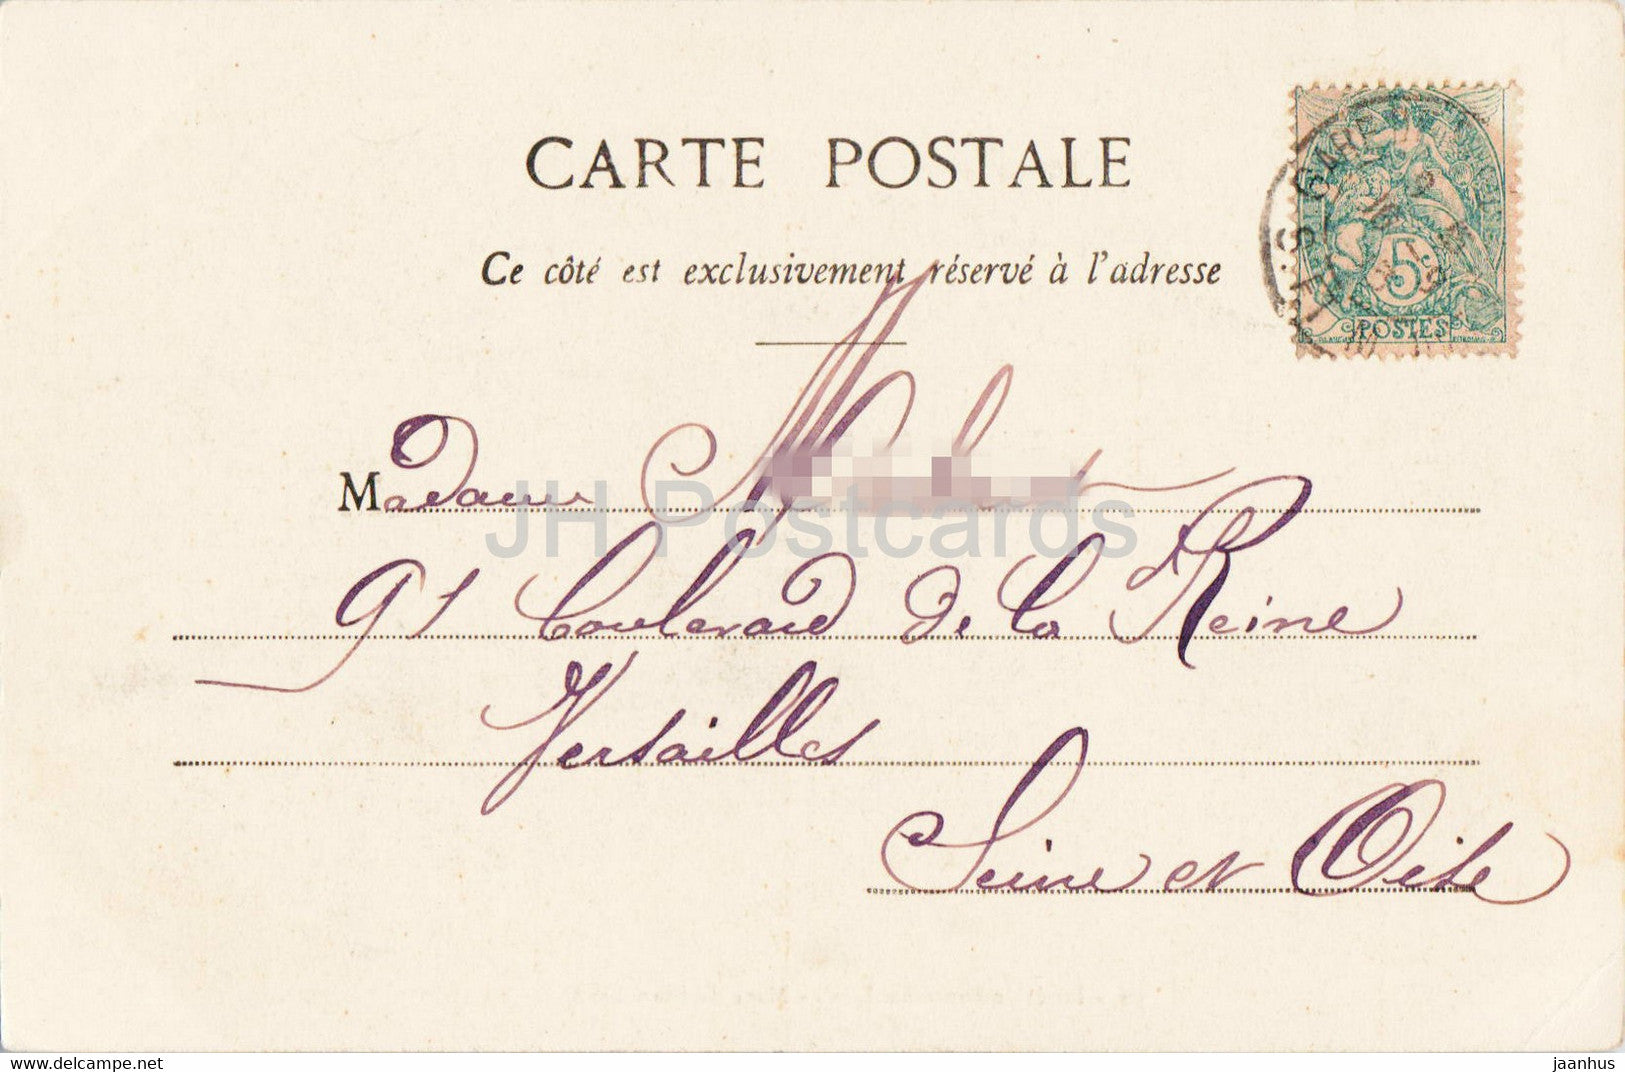 CARTE POSTALE
Ce côté est exclusivement réservé à l'adresse
5
POSTES
Madame
JH Postcards
91 boulevard de la Reine
Versailles
Seine et Oise
delcampe.net
jaanhus